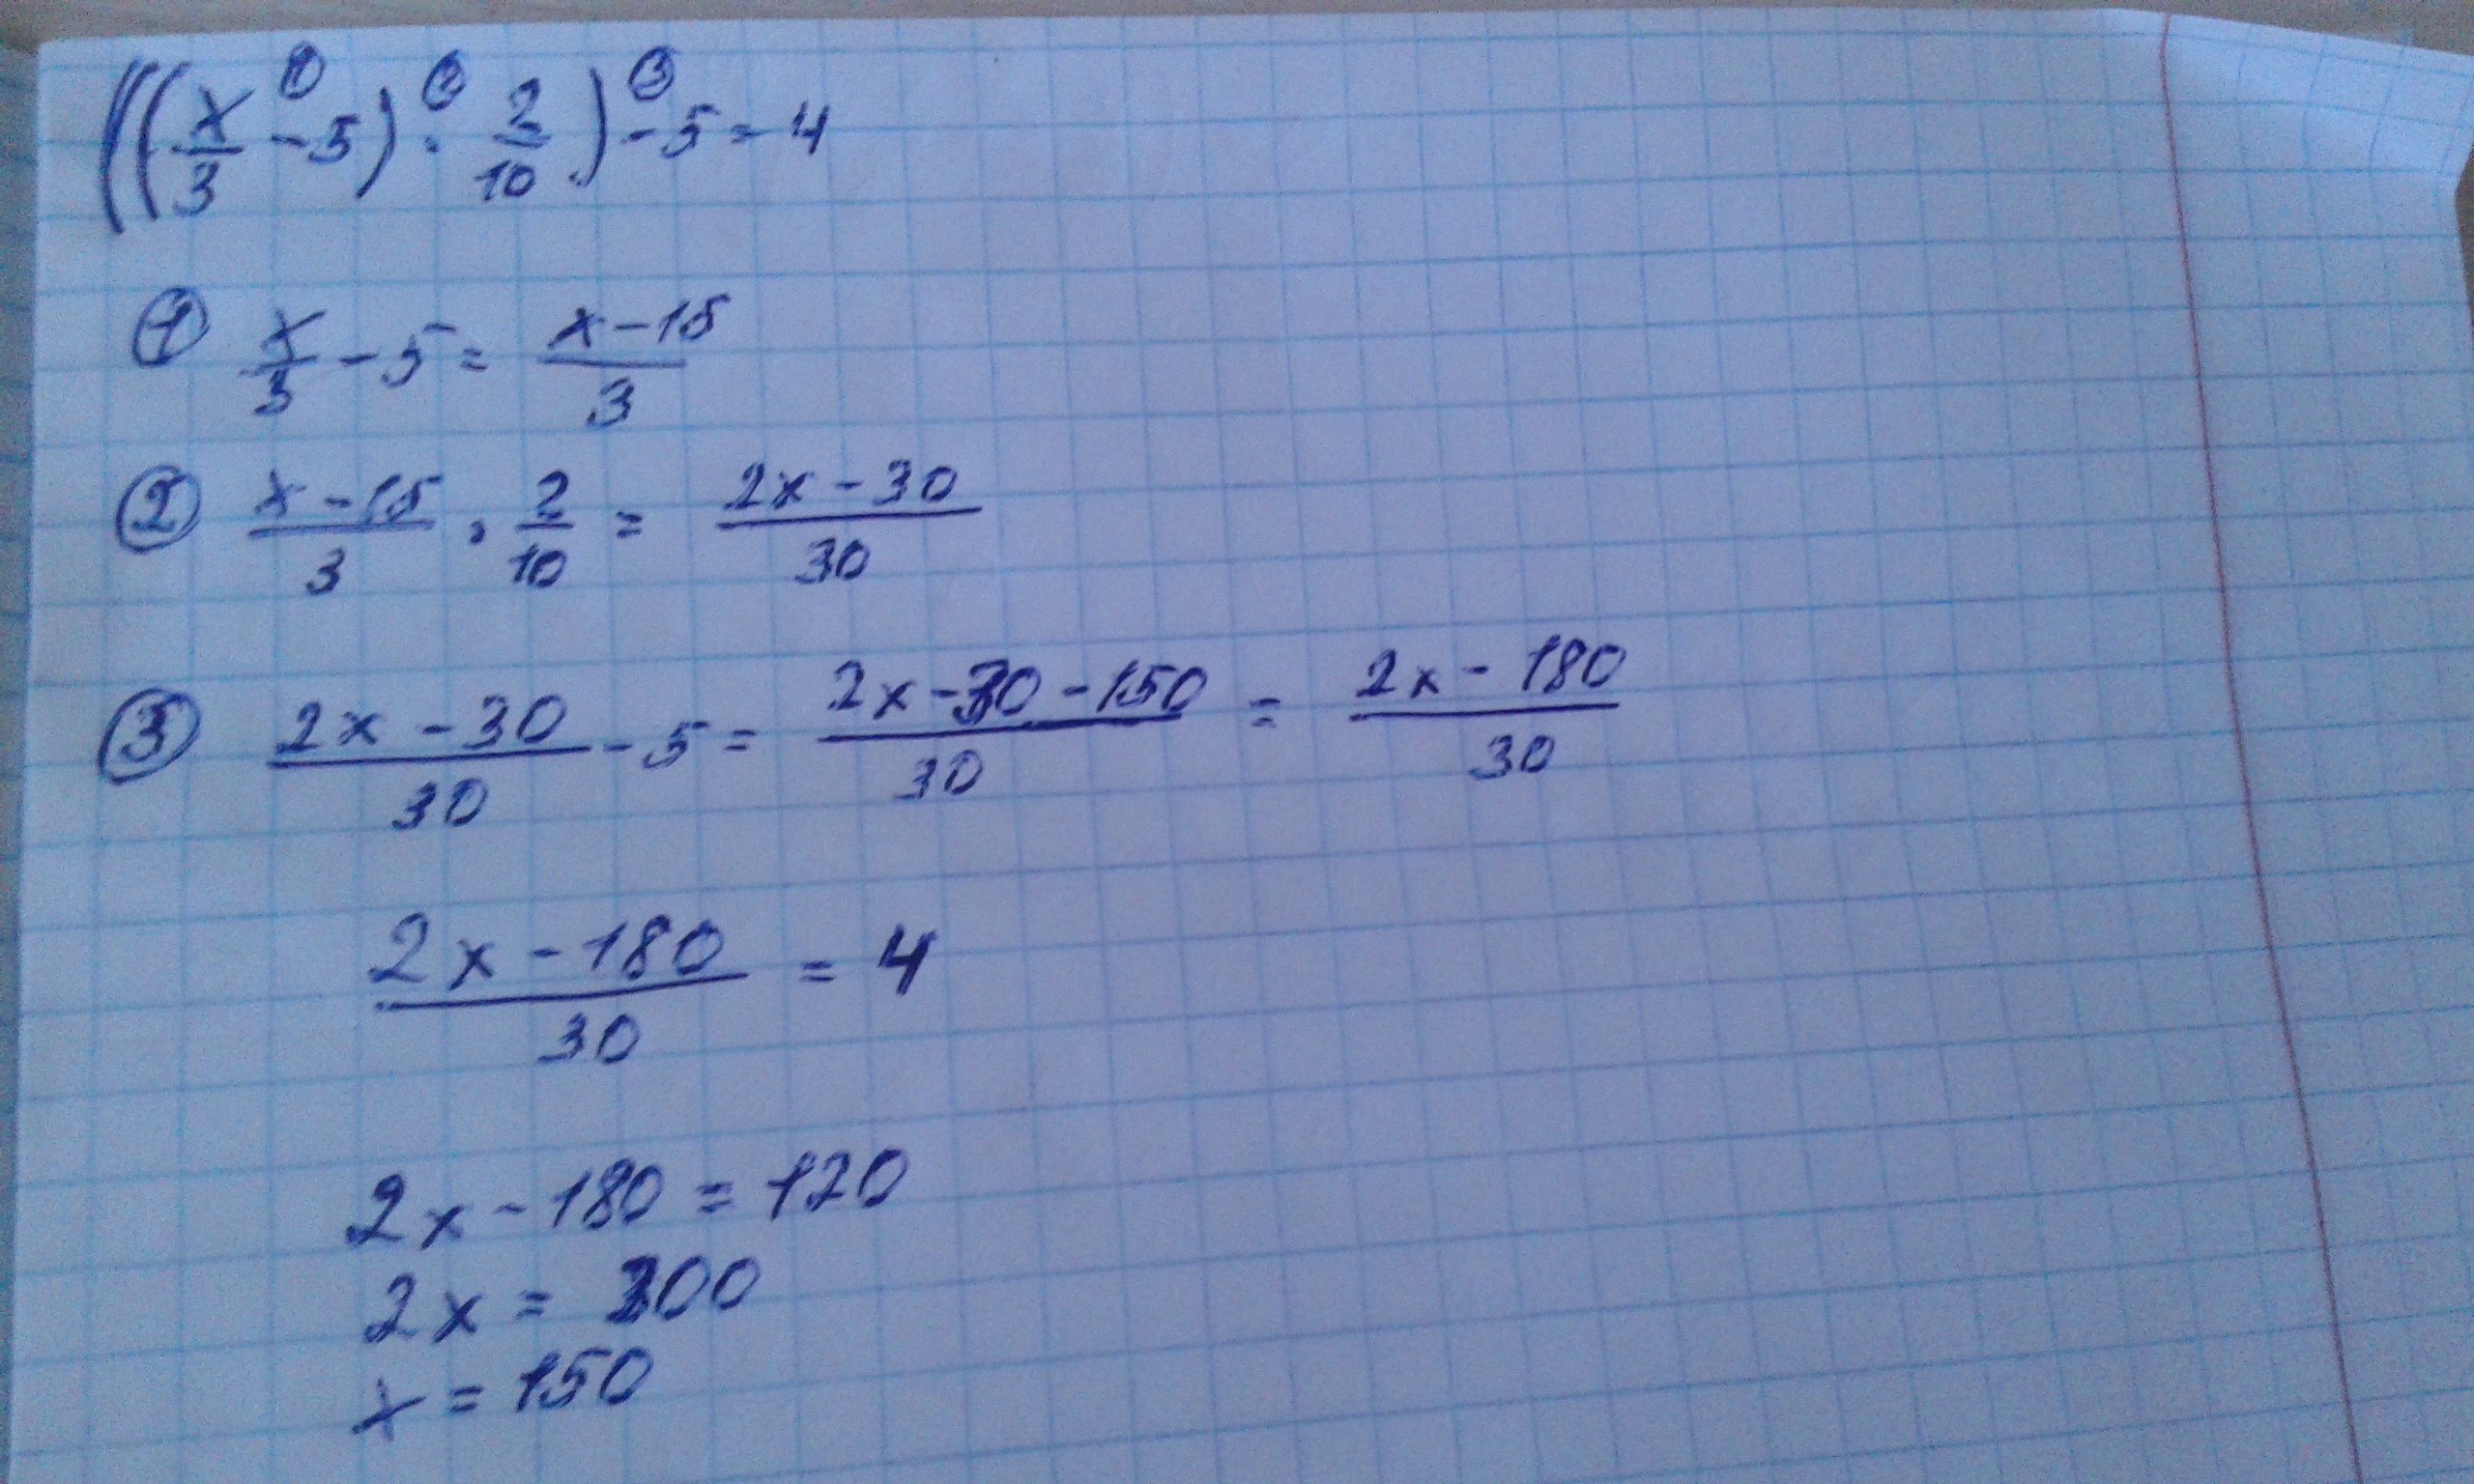 ((x/3 - 5) · 2/10) - 5 = 4
① x/3 - 5 = (x - 15)/3
② (x - 15)/3 · 2/10 = (2x - 30)/30
③ (2x - 30)/30 - 5 = (2x - 30 - 150)/30 = (2x - 180)/30
(2x - 180)/30 = 4
2x - 180 = 120
2x = 300
x = 150